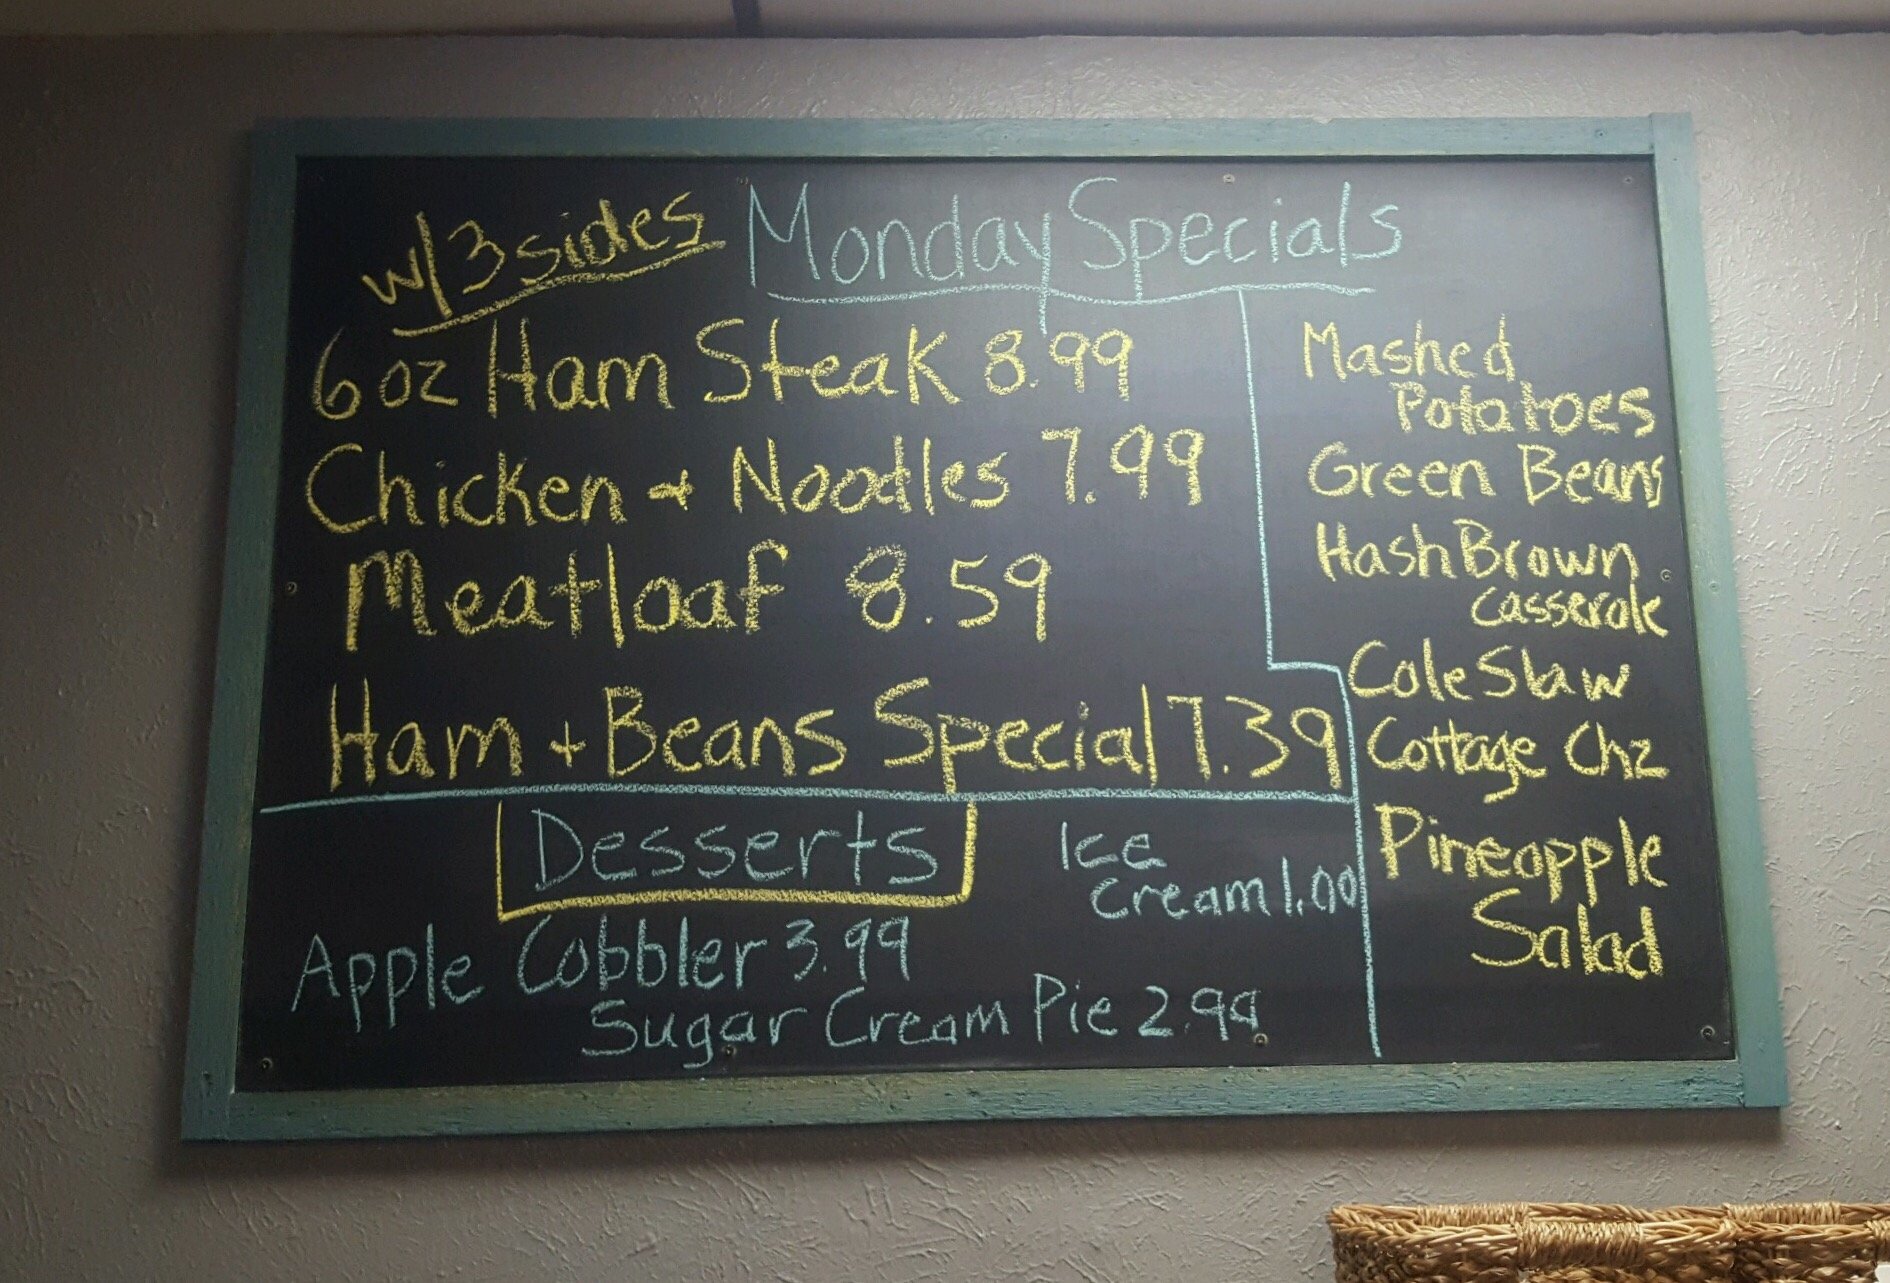 w/3 sides Monday Specials
6 oz Ham Steak 8.99
Chicken & Noodles 7.99
Meatloaf 8.59
Ham + Beans Special 7.39
Mashed
Potatoes
Green Beans
HashBrown
casserole
Cole Slaw
Cottage Chz
Pineapple
Salad
Desserts
Ice
Cream 1.00
Apple Cobbler 3.99
Sugar Cream Pie 2.99